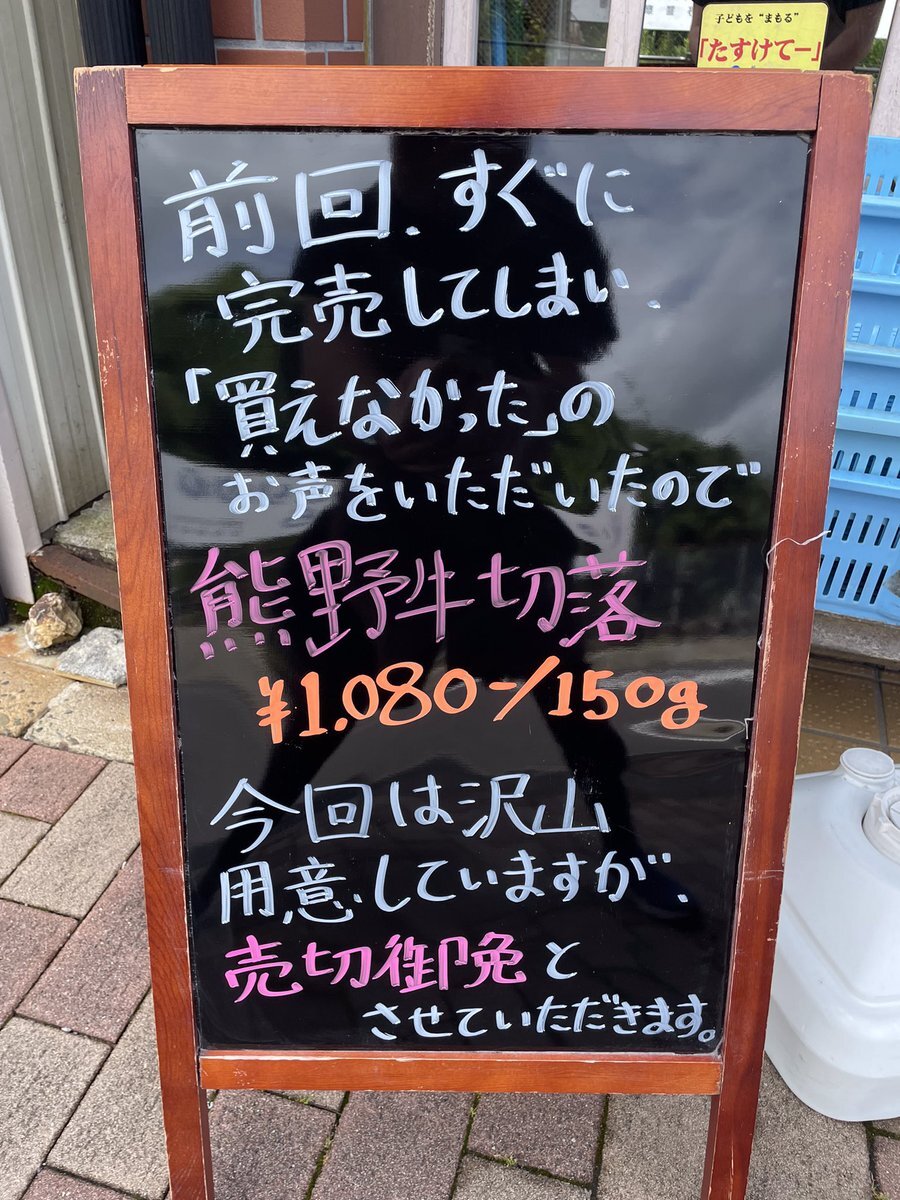 子どもを"まもる"
「たすけてー」
前回、すぐに
完売してしまい、
「買えなかった」の
お声をいただいたので
熊野牛切落
¥1.080-/150g
今回は沢山
用意していますが、
売切御免と
させていただきます。